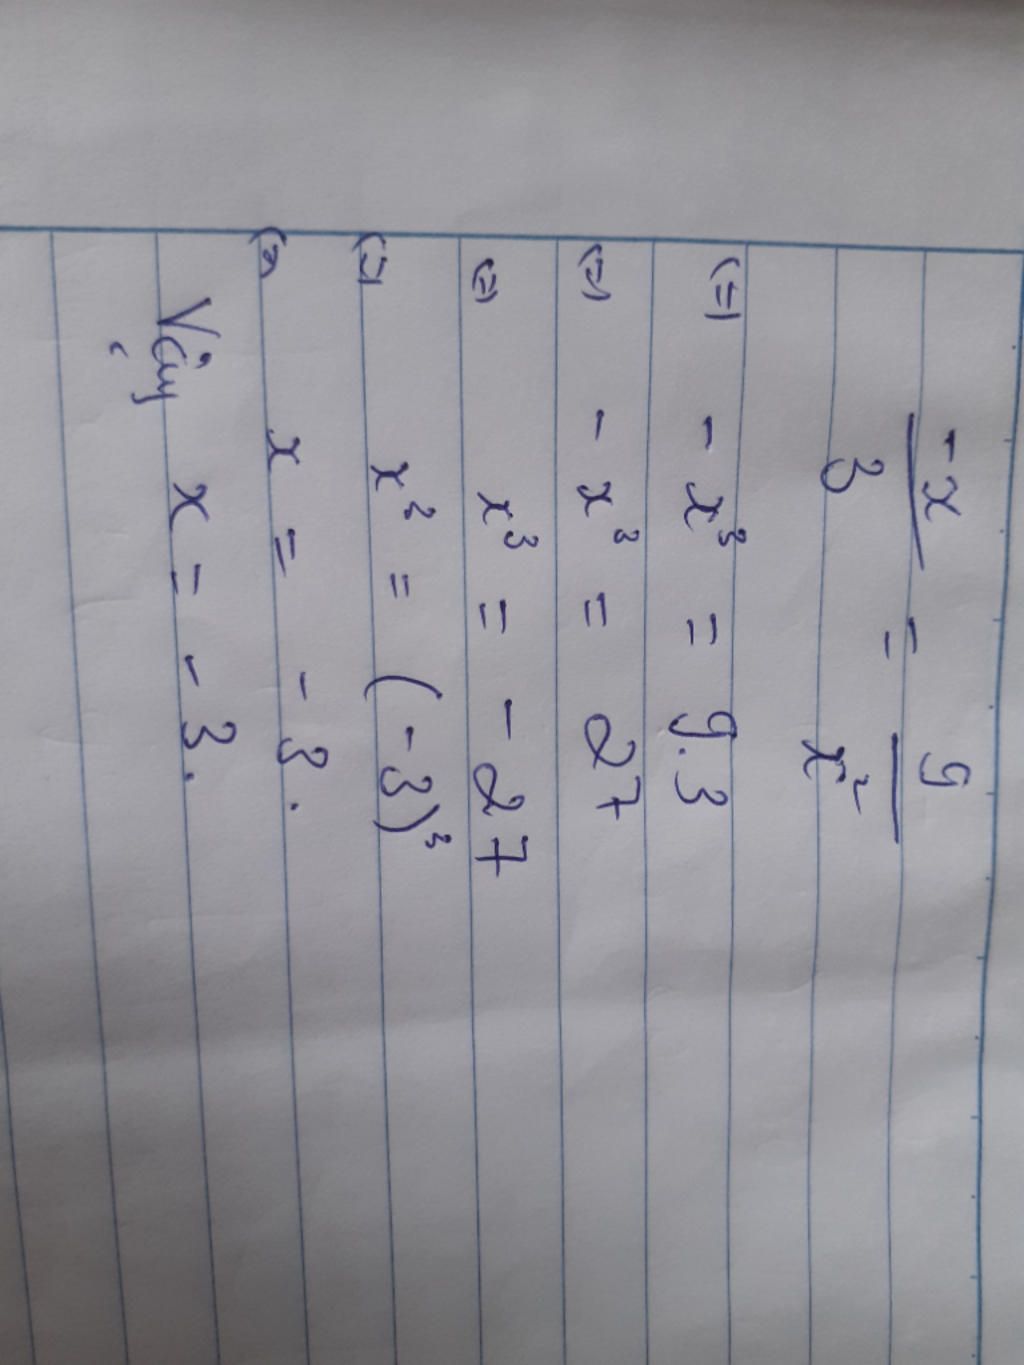 -x/3 = 9/x²
(=) -x³ = 9.3
(=) -x³ = 27
(=) x³ = -27
(=) x² = (-3)³
(=) x = -3.
Vậy x = -3.